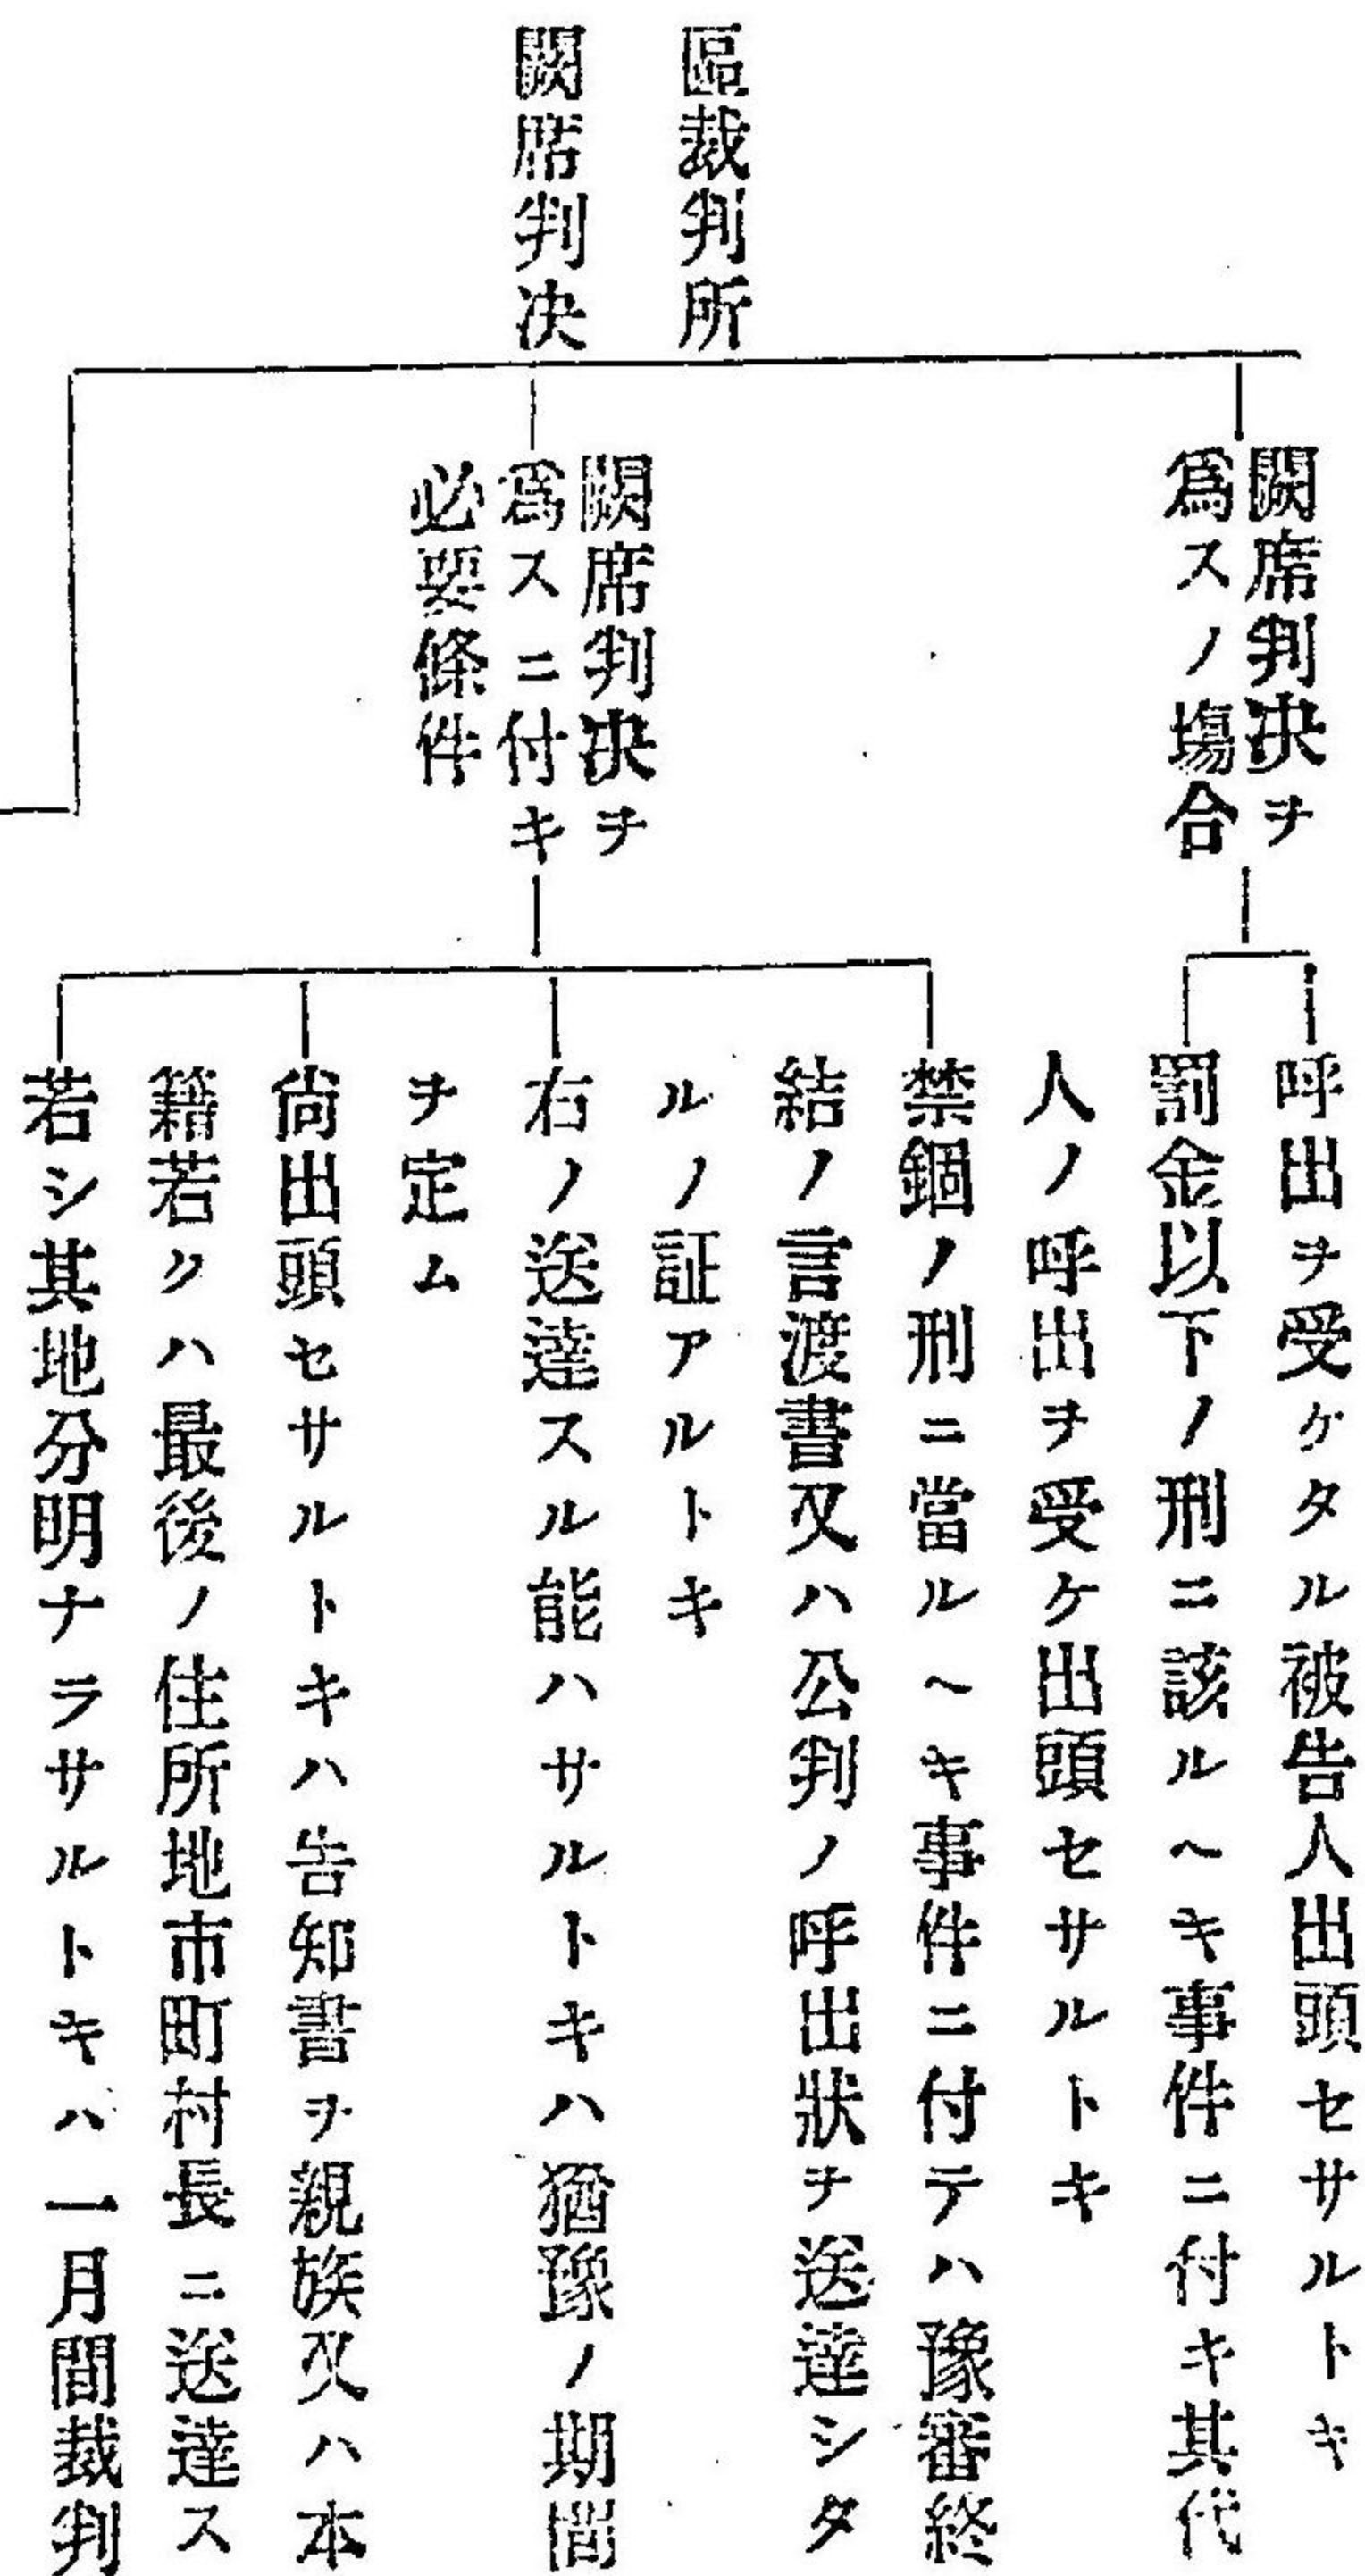 區裁判所
闕席判决
闕席判决ヲ
爲スノ塲合
呼出ヲ受ケタル被告人出頭セサルトキ
罰金以下ノ刑ニ該ルヘキ事件ニ付キ其代
人ノ呼出ヲ受ケ出頭セサルトキ
闕席判决ヲ
爲スニ付キ
必要條件
禁錮ノ刑ニ當ルヘキ事件ニ付テハ豫審終
結ノ言渡書又ハ公判ノ呼出狀ヲ送達シタ
ルノ証アルトキ
右ノ送達スル能ハサルトキハ猶豫ノ期間
ヲ定ム
尙出頭セサルトキハ告知書ヲ親族又ハ本
籍若クハ最後ノ住所地市町村長ニ送達ス
若シ其地分明ナラサルトキハ一月間裁判